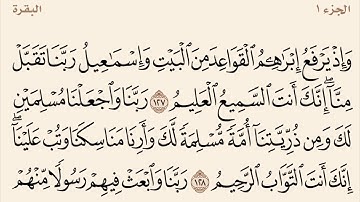 الجزء ١ البقرة
وَإِذْ يَرْفَعُ إِبْرَٰهِـۧمُ ٱلْقَوَاعِدَ مِنَ ٱلْبَيْتِ وَإِسْمَـٰعِيلُ رَبَّنَا تَقَبَّلْ
مِنَّآ ۖ إِنَّكَ أَنتَ ٱلسَّمِيعُ ٱلْعَلِيمُ ١٢٧ رَبَّنَا وَٱجْعَلْنَا مُسْلِمَيْنِ
لَكَ وَمِن ذُرِّيَّتِنَآ أُمَّةً مُّسْلِمَةً لَّكَ وَأَرِنَا مَنَاسِكَنَا وَتُبْ عَلَيْنَآ ۖ
إِنَّكَ أَنتَ ٱلتَّوَّابُ ٱلرَّحِيمُ ١٢٨ رَبَّنَا وَٱبْعَثْ فِيهِمْ رَسُولًا مِّنْهُمْ